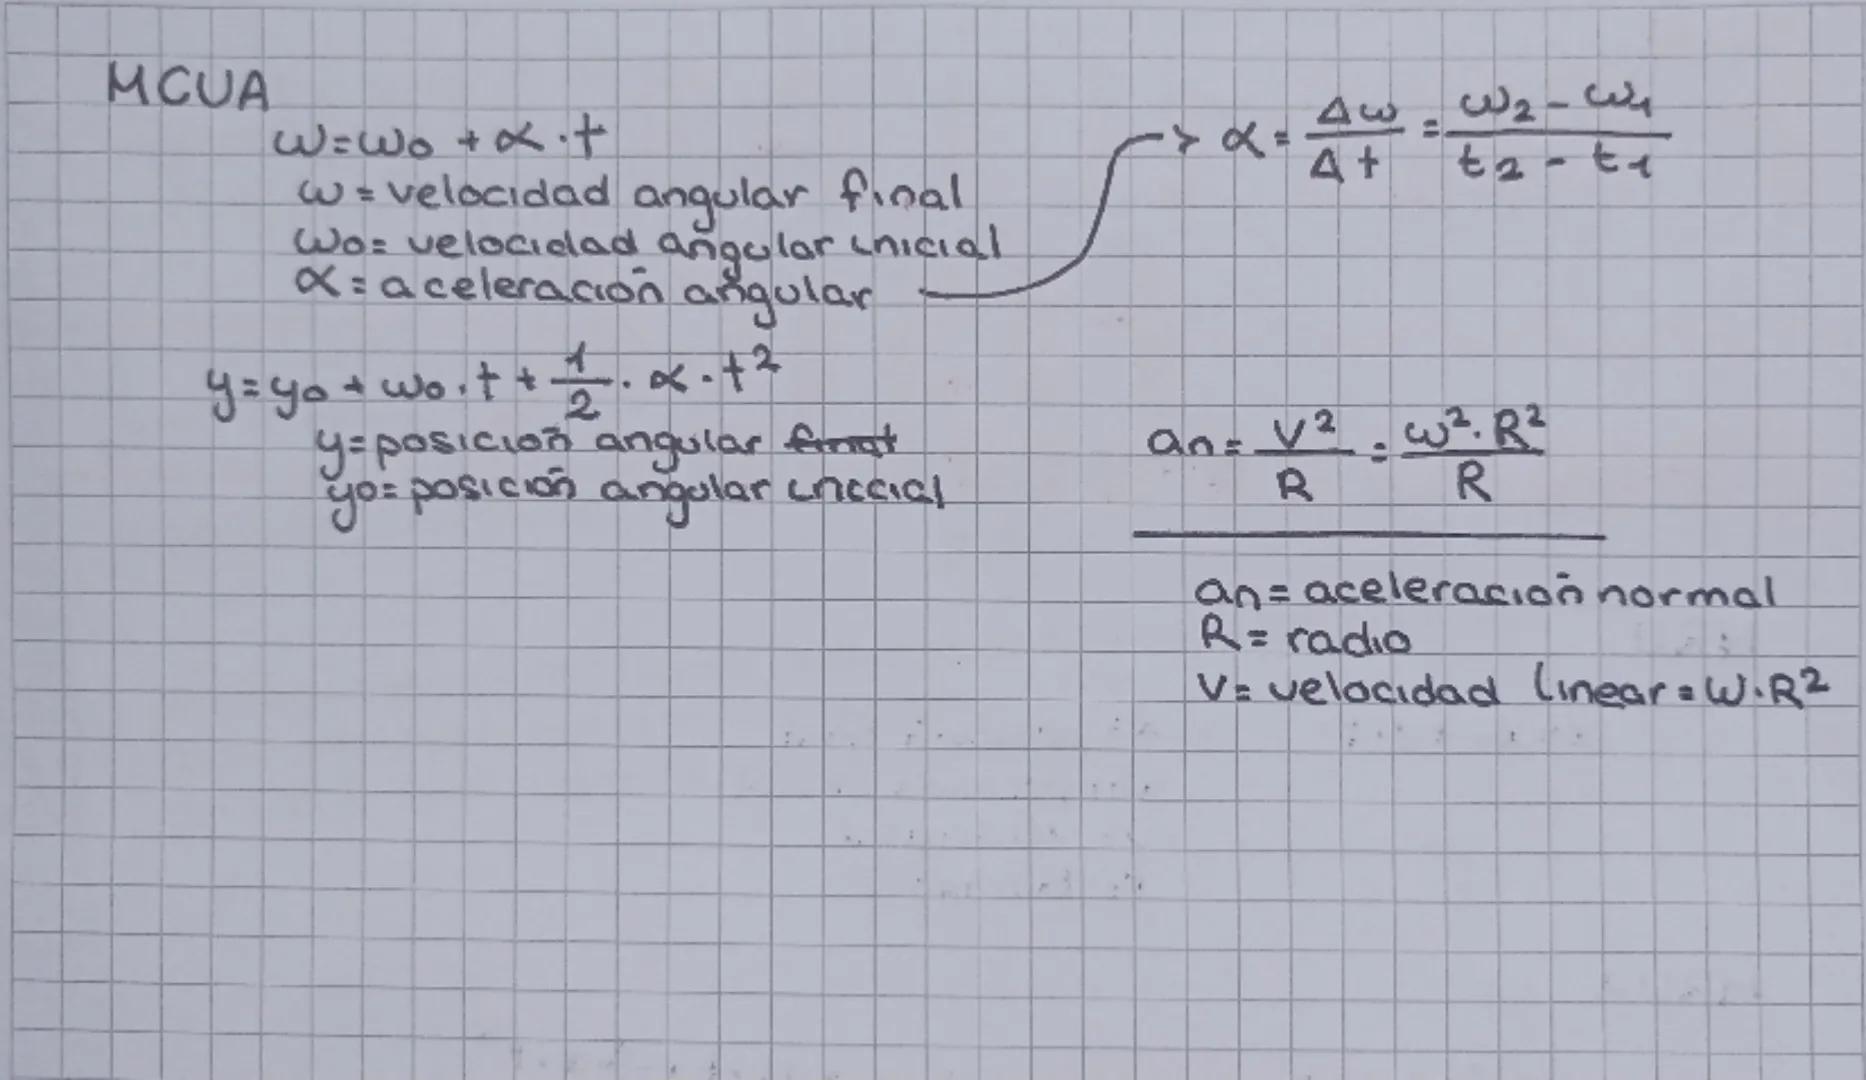 MCUA
ω=ωo + α·t
ω = velocidad angular final
ωo= velocidad angular inicial
α = aceleración angular
-> α = Δω/Δt = ω2 - ω1/t2 - t1
y=yo + ωo·t + 1/2 · α·t²
y=posición angular final
yo= posición angular iniccial
an= V²/R = ω²·R²/R
an= aceleración normal
R= radio
V= velocidad linear = W·R²